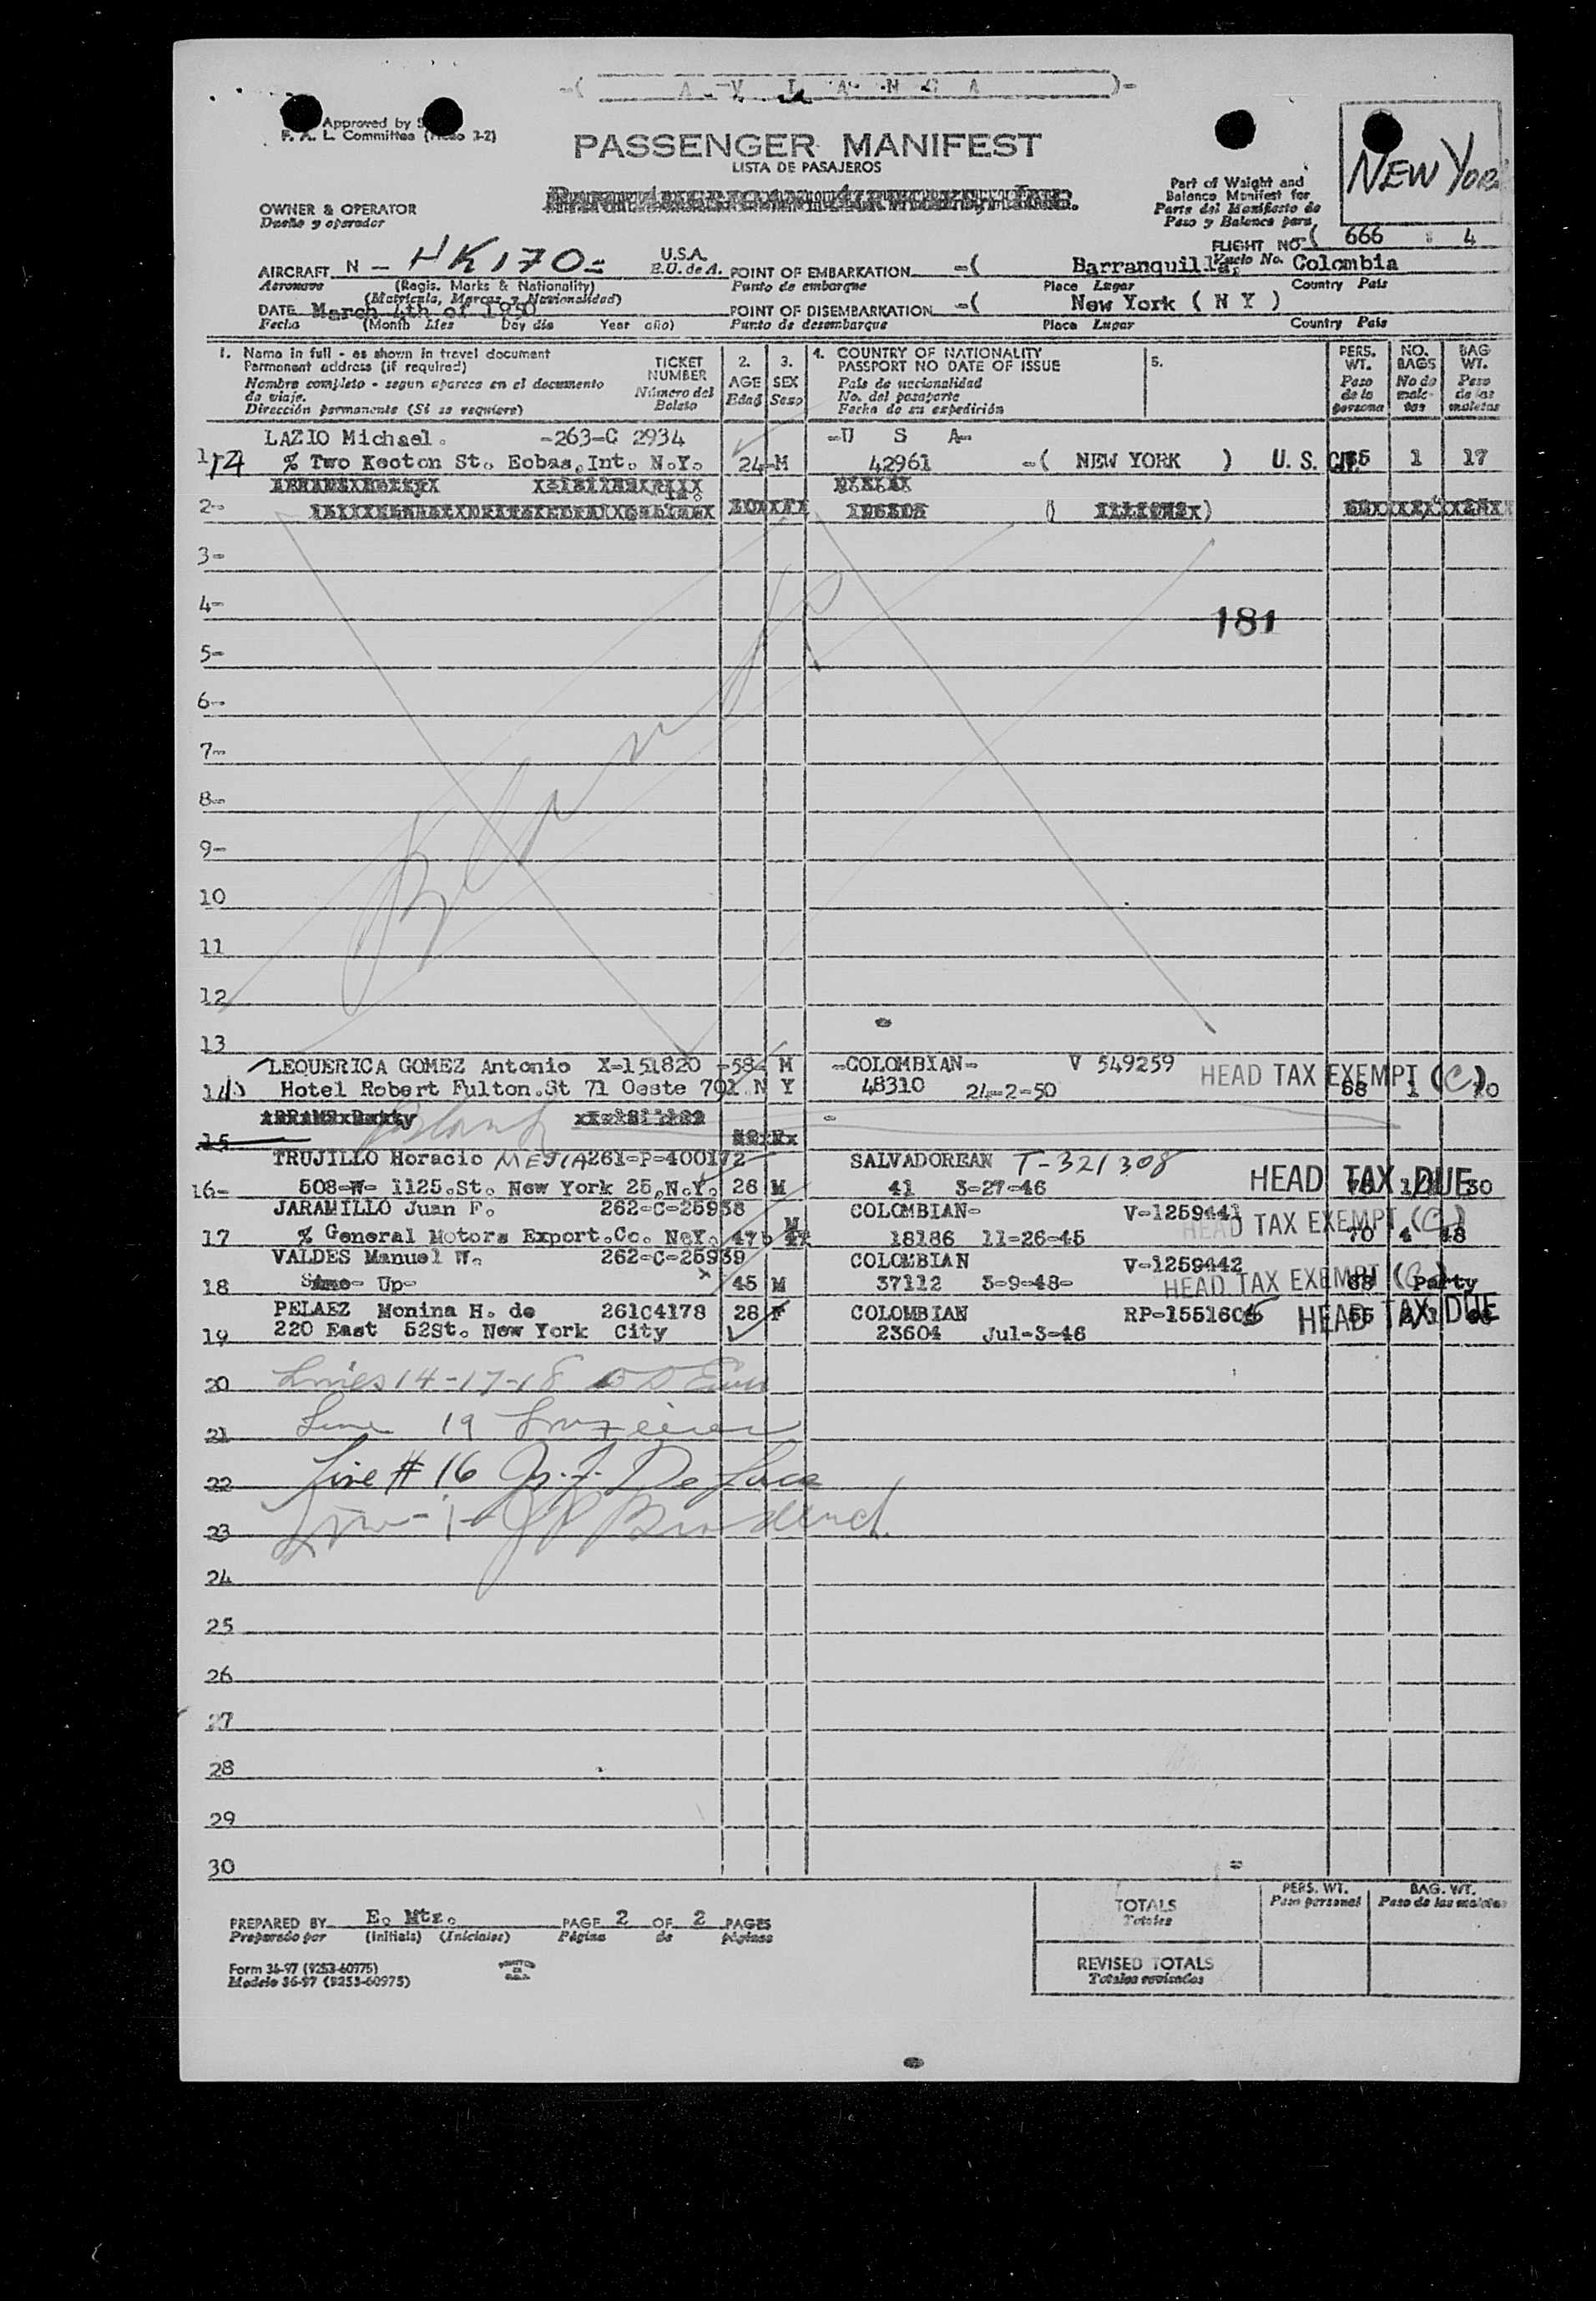 -( A V I A N C A )-
Approved by
F. A. L. Committee
PASSENGER MANIFEST
LISTA DE PASAJEROS
NEW YORK
Part of Weight and
Balance Manifest for
Parte del Manifiesto de
Peso y Balance para
OWNER & OPERATOR
Dueño y operador
FLIGHT NO. -( 666 : 4
Vuelo No.
AIRCRAFT N - HK170-
Aeronave
(Regis. Marks & Nationality)
(Matricula, Marcas y Nacionalidad)
U.S.A.
E.U. de A.
POINT OF EMBARKATION -( Barranquilla, Colombia
Punto de embarque Place Lugar Country País
DATE March 4th of 1950
Fecha (Month Mes Day día Year año)
POINT OF DISEMBARKATION -( New York ( N Y )
Punto de desembarque Place Lugar Country País
1. Name in full - as shown in travel document
Permanent address (if required)
Nombre completo - segun aparece en el documento
de viaje.
Dirección permanente (Si se requiere)
TICKET
NUMBER
Número del
Boleto
2.
AGE
Edad
3.
SEX
Sexo
4. COUNTRY OF NATIONALITY
PASSPORT NO DATE OF ISSUE
País de nacionalidad
No. del pasaporte
Fecha de su expedición
5.
PERS.
WT.
Peso
de la
persona
NO.
BAGS
No de
male-
tas
BAG
WT.
Peso
de las
maletas
LAZIO Michael. -263-C 2934 -U S A-
1 % Two Keoton St. Eobas,Int. N.Y. 24-M 42961 -( NEW YORK ) U. S. CIT. 1 17
2-
3-
4-
181
5-
6-
7-
8-
9-
10
11
12
13
LEQUERICA GOMEZ Antonio X-151820 -58- M -COLOMBIAN- V 549259 HEAD TAX EXEMPT (C)
14 Hotel Robert Fulton.St 71 Oeste 701 N Y 48310 24-2-50 68 1 10
15 Blank
TRUJILLO Horacio MEJIA 261-P-400172 SALVADOREAN T-321308 HEAD TAX DUE
16- 508-W- 1125.St. New York 25,N.Y. 26 M 41 3-27-46
JARAMILLO Juan F. 262-C-25938 COLOMBIAN- V-1259441 HEAD TAX EXEMPT (C)
17 % General Motors Export.Co. NeY. 47 M 18186 11-26-45 70 4 48
VALDES Manuel W. 262-C-25939 COLOMBIAN V-1259442
18 Same- Up- 45 M 37112 3-9-48- HEAD TAX EXEMPT (C) 68 Party
PELAEZ Monina H. de 261C4178 28 F COLOMBIAN RP-1551605 HEAD TAX DUE
19 220 East 52St. New York City 23604 Jul-3-46
20 Lines 14-17-18
21 Line 19
22 Line # 16 De Luca
23
24
25
26
27
28
29
30
PREPARED BY E. Mtz. PAGE 2 OF 2 PAGES
Preparado por (Initials) (Iniciales) Página de páginas
Form 36-97 (9253-60975)
Modelo 36-97 (9253-60975)
PRINTED
IN
U.S.A.
PERS. WT.
Peso personal
BAG. WT.
Peso de las maletas
TOTALS
Totales
REVISED TOTALS
Totales revisados